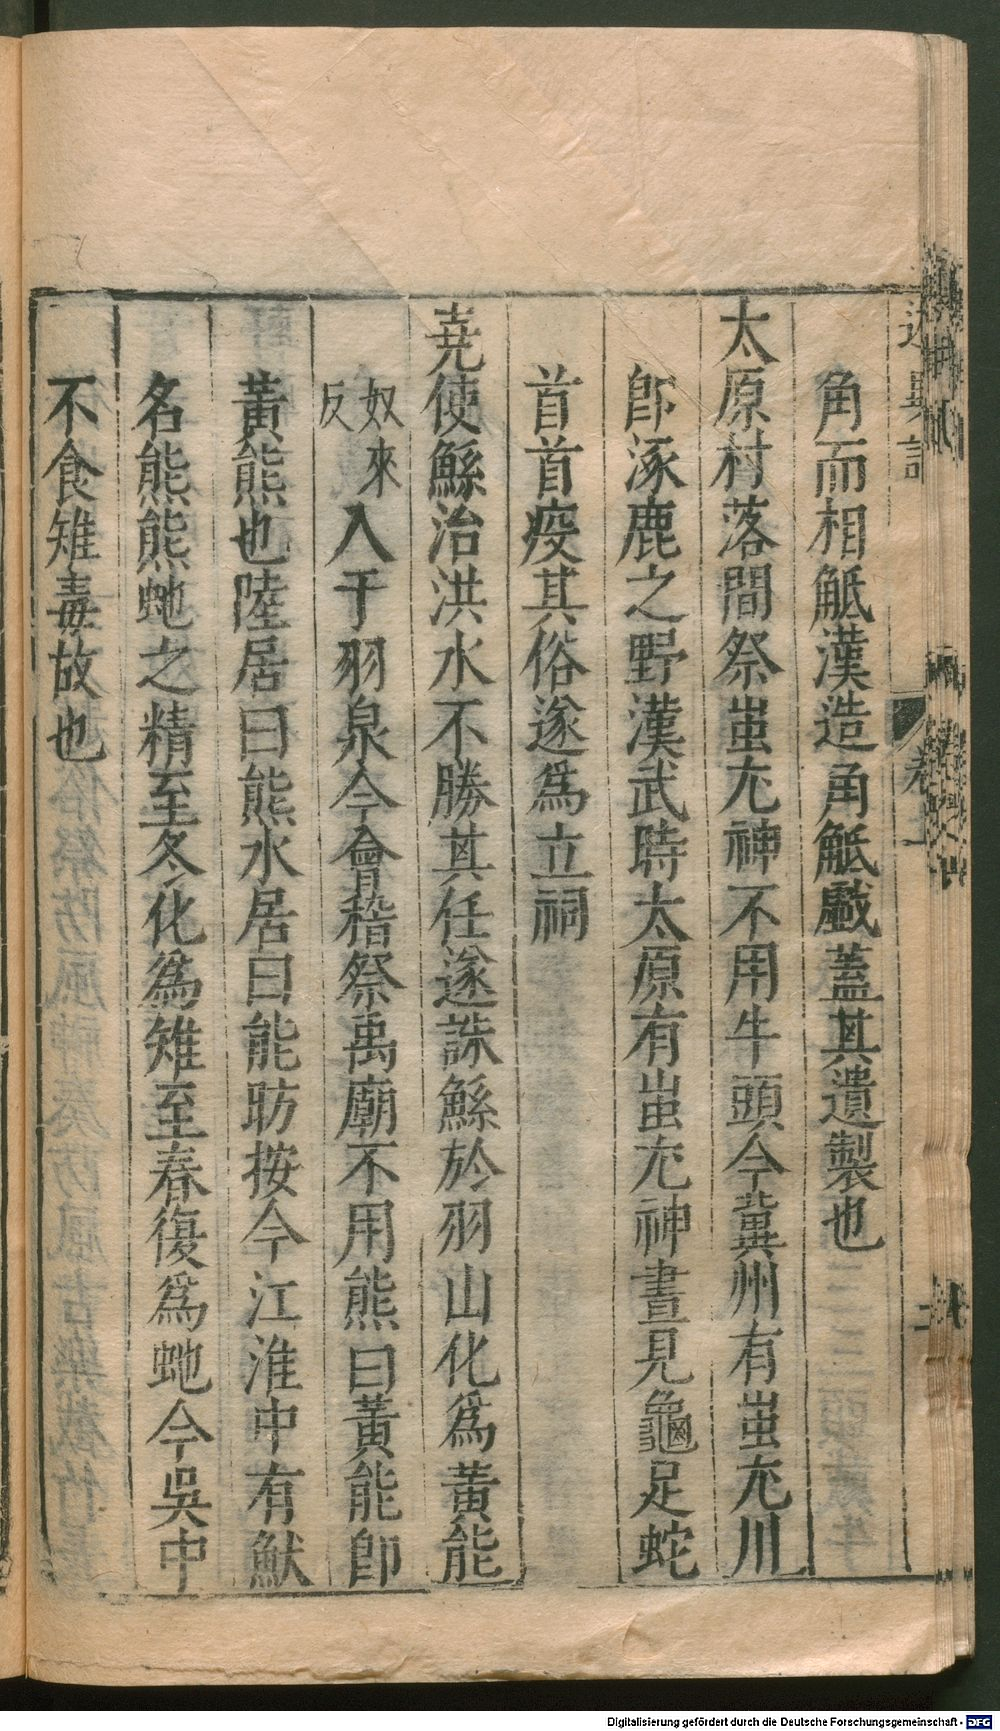 述異記 卷上 二
角而相觝漢造角觝戱蓋其遺製也
太原村落間祭蚩尤神不用牛頭今冀州有蚩尤川
卽涿鹿之野漢武時太原有蚩尤神晝見龜足蛇
首首疫其俗遂爲立祠
堯使鯀治洪水不勝其任遂誅鯀於羽山化爲黃能
奴來反入于羽泉今會稽祭禹廟不用熊曰黃能卽
黃熊也陸居曰熊水居曰能昉按今江淮中有獸
名熊熊虵之精至冬化爲雉至春復爲虵今吳中
不食雉毒故也
Digitalisierung gefördert durch die Deutsche Forschungsgemeinschaft - DFG